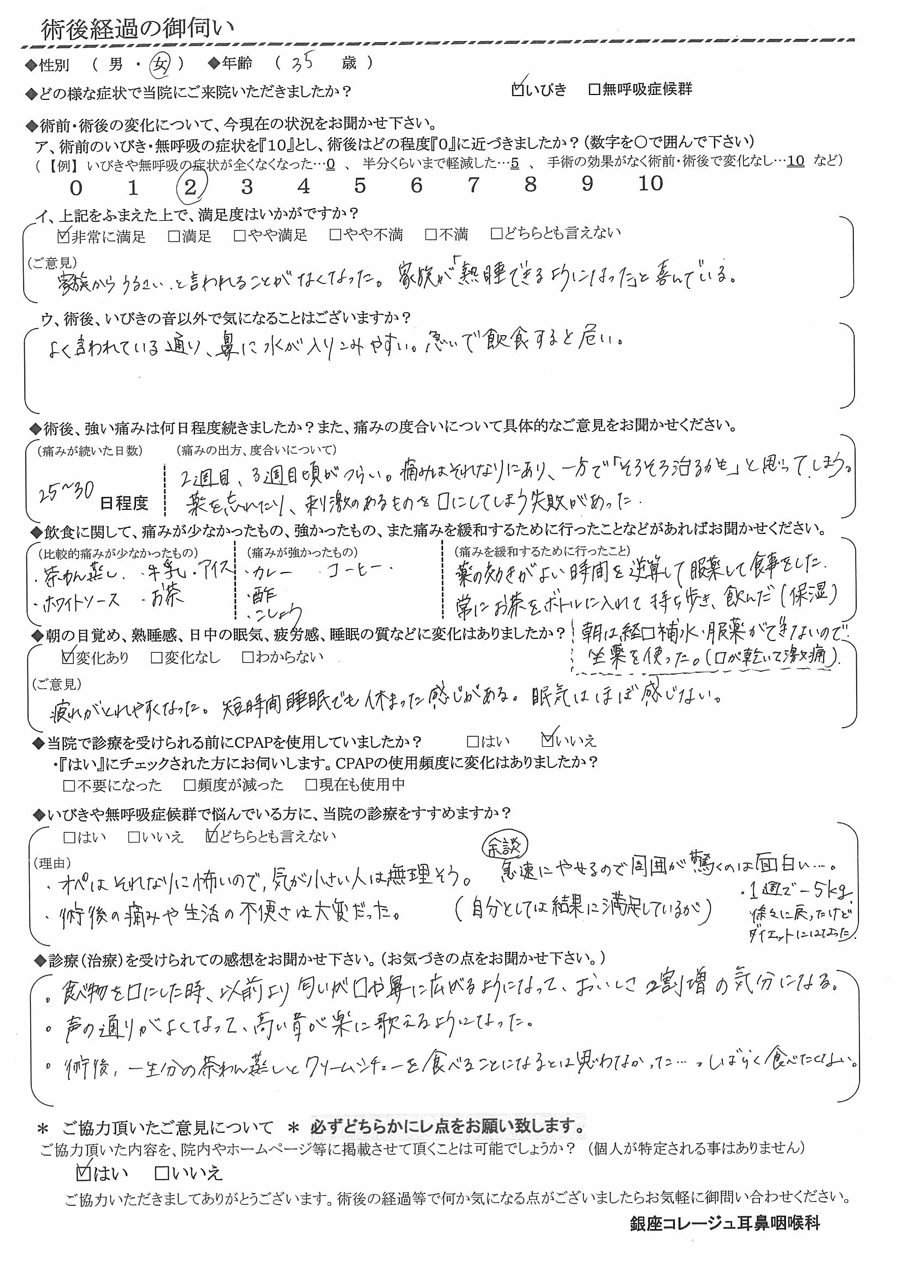 術後経過の御伺い
◆性別 ( 男 ・ 女 ) ◆年齢 ( 35 歳 )
◆どの様な症状で当院にご来院いただきましたか? ☑いびき □無呼吸症候群
◆術前・術後の変化について、今現在の状況をお聞かせ下さい。
ア、術前のいびき・無呼吸の症状を『10』とし、術後はどの程度『0』に近づきましたか?(数字を○で囲んで下さい)
(【例】いびきや無呼吸の症状が全くなくなった…0 、 半分くらいまで軽減した…5 、 手術の効果がなく術前・術後で変化なし…10 など)
0 1 2 3 4 5 6 7 8 9 10
イ、上記をふまえた上で、満足度はいかがですか?
☑非常に満足 □満足 □やや満足 □やや不満 □不満 □どちらとも言えない
(ご意見)
家族からうるさい、と言われることがなくなった。家族が「熟睡できるようになった」と喜んでいる。
ウ、術後、いびきの音以外で気になることはございますか?
よく言われている通り、鼻に水が入りこみやすい。急いで飲食すると危い。
◆術後、強い痛みは何日程度続きましたか?また、痛みの度合いについて具体的なご意見をお聞かせください。
(痛みが続いた日数) (痛みの出方、度合いについて)
25~30 日程度
2週目、3週目頃がつらい。痛みはそれなりにあり、一方で「そろそろ治るかも」と思ってしまう。
薬を忘れたり、刺激のあるものを口にしてしまう失敗があった.
◆飲食に関して、痛みが少なかったもの、強かったもの、また痛みを緩和するために行ったことなどがあればお聞かせください。
(比較的痛みが少なかったもの)
・茶わん蒸し ・牛乳 ・アイス
・ホワイトソース ・お茶
(痛みが強かったもの)
・カレー ・コーヒー
・酢
・こしょう
(痛みを緩和するために行ったこと)
薬の効きがよい時間を逆算して服薬して食事をした.
常にお茶をボトルに入れて持ち歩き、飲んだ(保湿)
朝は経口補水・服薬ができないので
坐薬を使った。(口が乾いて激痛)
◆朝の目覚め、熟睡感、日中の眠気、疲労感、睡眠の質などに変化はありましたか?
☑変化あり □変化なし □わからない
(ご意見)
疲れがとれやすくなった。短時間睡眠でも休まった感じがある。眠気はほぼ感じない。
◆当院で診療を受けられる前にCPAPを使用していましたか? □はい ☑いいえ
・『はい』にチェックされた方にお伺いします。CPAPの使用頻度に変化はありましたか?
□不要になった □頻度が減った □現在も使用中
◆いびきや無呼吸症候群で悩んでいる方に、当院の診療をすすめますか?
□はい □いいえ ☑どちらとも言えない
(理由)
・オペはそれなりに怖いので、気が小さい人は無理そう。
・術後の痛みや生活の不便さは大変だった。 (自分としては結果に満足しているが)
余談 急速にやせるので周囲が驚くのは面白い…。
・1週で-5kg.
徐々に戻ったけど
ダイエットにはなった.
◆診療(治療)を受けられての感想をお聞かせ下さい。(お気づきの点をお聞かせ下さい。)
。食べ物を口にした時、以前より匂いが口や鼻に広がるようになって、おいしさ2割増の気分になる。
。声の通りがよくなって、高い音が楽に歌えるようになった。
。術後、一生分の茶わん蒸しとクリームシチューを食べることになるとは思わなかった…。しばらく食べたくない。
* ご協力頂いたご意見について * 必ずどちらかにレ点をお願い致します。
ご協力頂いた内容を、院内やホームページ等に掲載させて頂くことは可能でしょうか? (個人が特定される事はありません)
☑はい □いいえ
ご協力いただきましてありがとうございます。術後の経過等で何か気になる点がございましたらお気軽に御問い合わせください。
銀座コレージュ耳鼻咽喉科